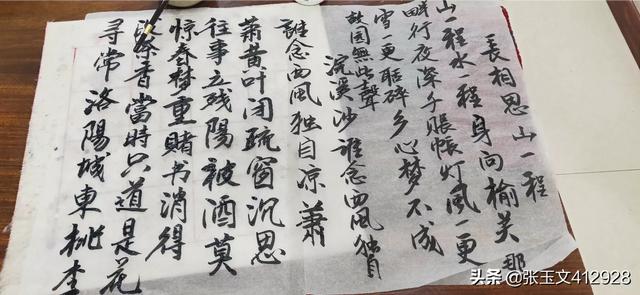 長相思山一程
山一程水一程身向榆关那
畔行夜深千賬帳灯風一更
雪一更聒碎乡心梦不成
故园無此聲
浣溪沙谁念西風独自
谁念西風独自凉萧
萧黄叶闭疏窗沉思
往事立残陽被酒莫
惊春梦重赌书消得
泼茶香當時只道是花
寻常洛陽城東桃李
头条 @张玉文412928